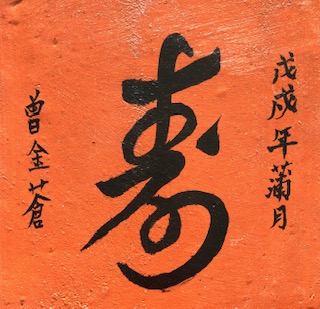 戊戌年蒲月
寿
曾金蒼